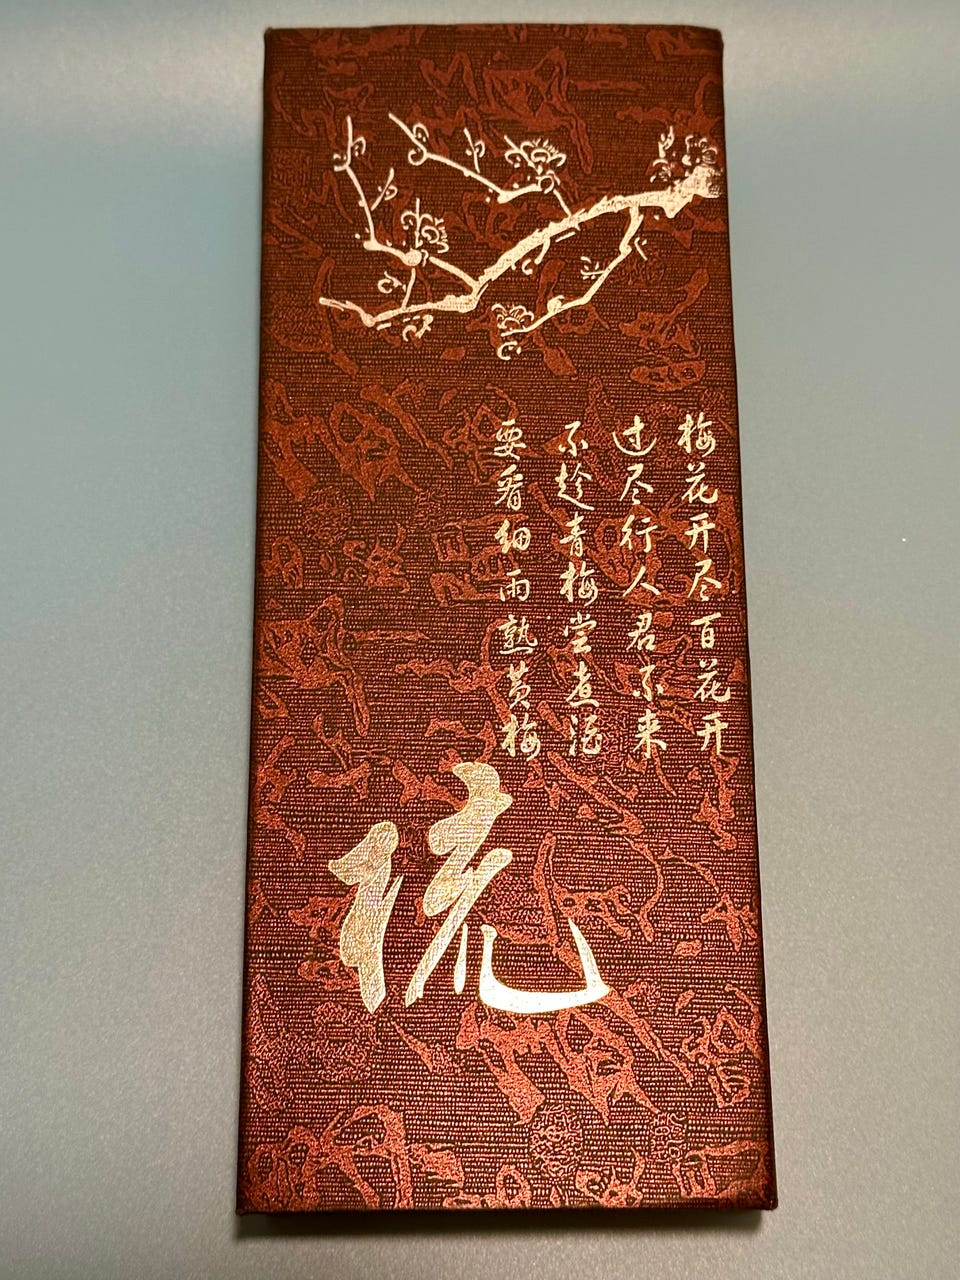 梅花开尽百花开
过尽行人君不来
不趁青梅尝煮酒
要看细雨熟黄梅
梳